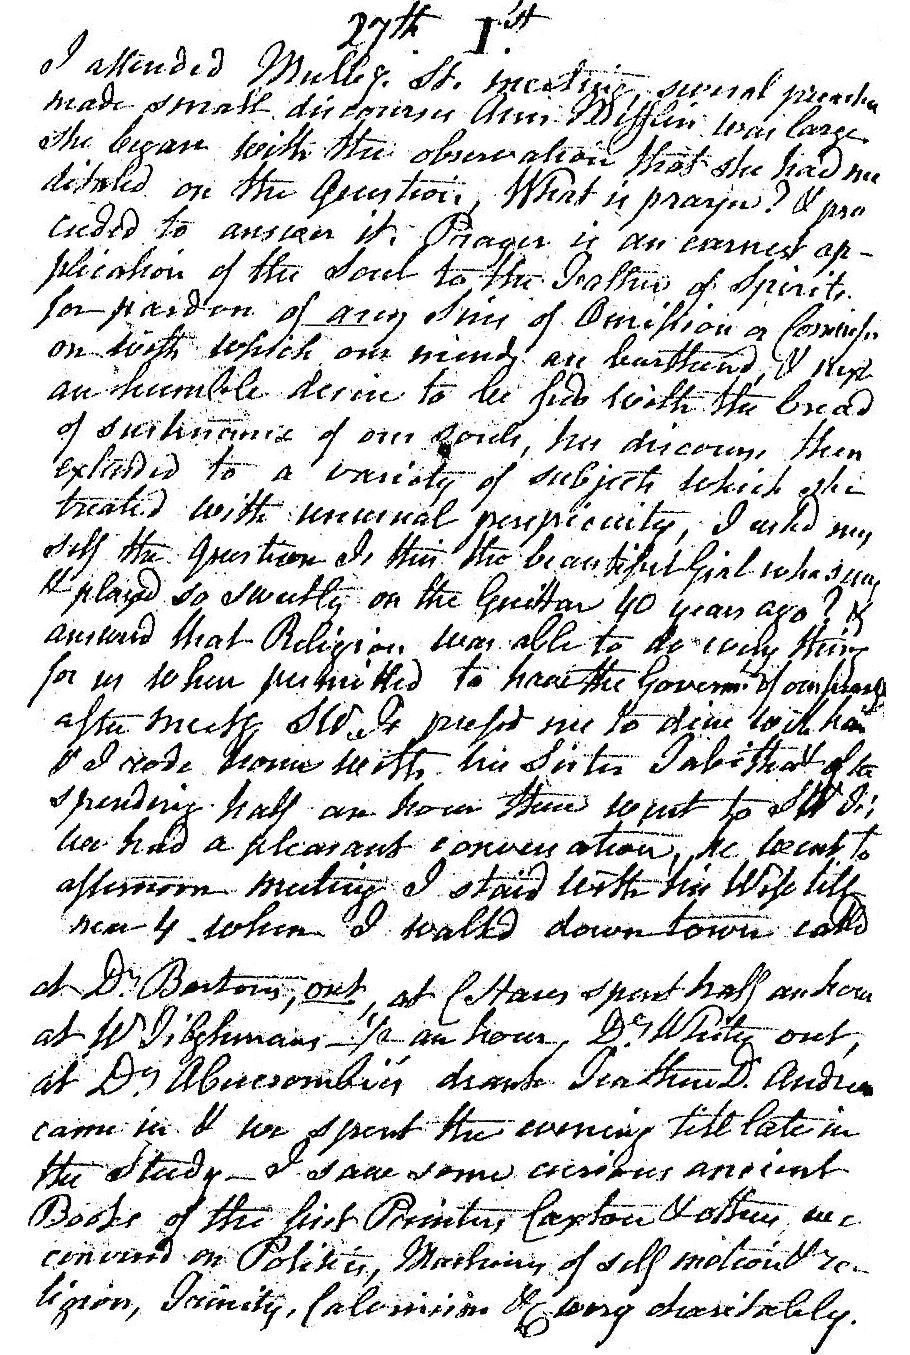 27th 1st
I attended Mulby. St. meeting, several preachers
made small discourses Ann Mifflin was large
she began with the observation that she had me
ditated on the Question, What is prayer? & pro
ceeded to answer it. Prayer is an earnest ap-
plication of the Soul to the Father of Spirits
for pardon of any Sins of Omission or Commissi
on with which our minds are burthend, & next
an humble desire to be fed with the bread
of sustenance of our souls, her discourse then
extended to a variety of subjects which she
treated with unusual perspicuity, I asked my
self the Question Is this the beautiful Girl who sung
& played so sweetly on the Guittar 40 years ago? &
answerd that Religion was able to do every thing
for us when permitted to have the Governmt of our hearts
after meetg SW Fr pressd me to dine with him
& I rode home with his Sister Tabitha & after
spending half an hour there went to SW Fs
we had a pleasant conversation, he went to
afternoon meeting I staid with his Wife till
near 4 when I walkd down town calld
at Dr Bartons, out, at C Hares spent half an hour
at W Tilghmans - 1/2 an hour, Dr Whites out,
at Dr Abercrombie's drank Tea there Dr. Andrews
came in & we spent the evening till late in
the Study - I saw some curious ancient
Books of the first Printers Caxton & others, we
conversd on Politics, Machines of self motion & re-
ligion, Trinity, Calvinism &c very charitably.